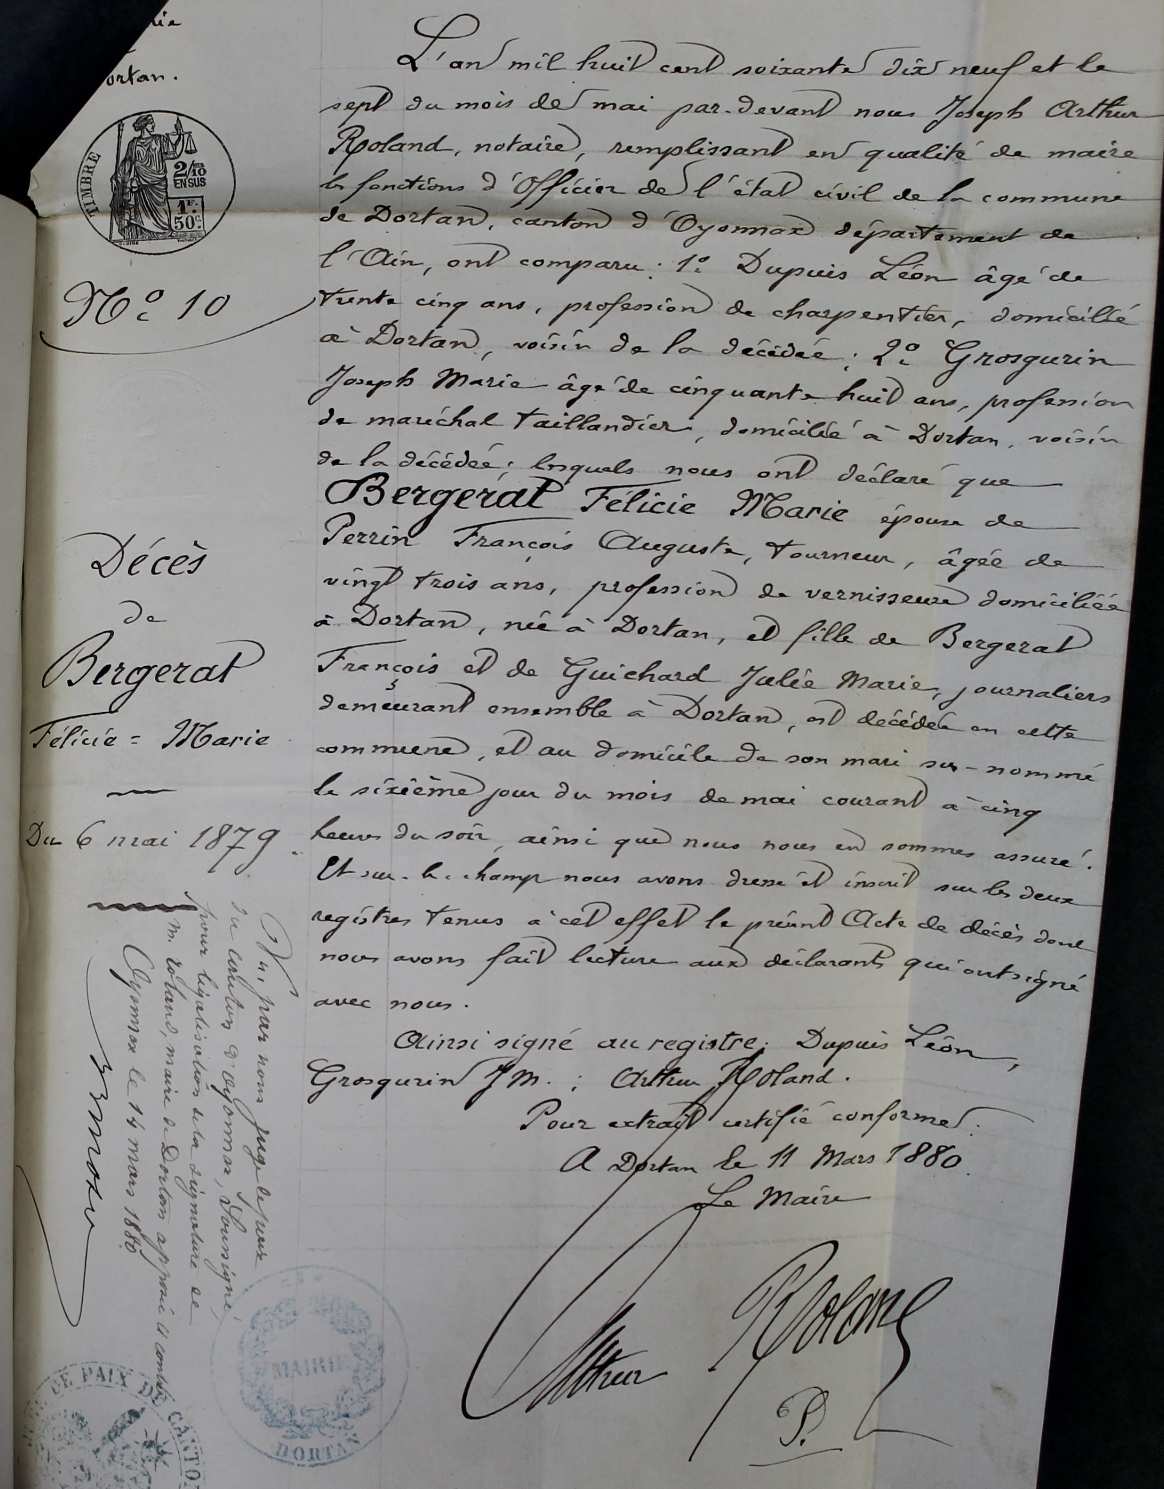 ortan.
TIMBRE
2/10
EN SUS
1F.
50c.
No 10
Décès
de
Bergerat
Félicie = Marie
Du 6 mai 1879.
L'an mil huit cent soixante dix neuf et le
sept du mois de mai par-devant nous Joseph Arthur
Roland, notaire, remplissant en qualité de maire
les fonctions d'Officier de l'état civil de la commune
de Dortan, canton d'Oyonnax département de
l'Ain, ont comparu : 1o Dupuis Léon âgé de
trente cinq ans, profession de charpentier, domicilié
à Dortan, voisin de la décédée ; 2o Grosgurin
Joseph Marie âgé de cinquante huit ans, profession
de maréchal taillandier, domicilié à Dortan, voisin
de la décédée ; lesquels nous ont déclaré que
Bergerat Félicie Marie épouse de
Perrin François Auguste, tourneur, âgée de
vingt trois ans, profession de vernisseuse domiciliée
à Dortan, née à Dortan, et fille de Bergerat
François et de Guichard Julie Marie, journaliers
demeurant ensemble à Dortan, est décédée en cette
commune, et au domicile de son mari sus-nommé
le sixième jour du mois de mai courant à cinq
heures du soir, ainsi que nous nous en sommes assuré.
Et sur-le-champ nous avons dressé et inscrit sur les deux
registres tenus à cet effet le présent Acte de décès dont
nous avons fait lecture aux déclarants qui ont signé
avec nous.
Ainsi signé au registre : Dupuis Léon,
Grosgurin J M. ; Arthur Roland.
Pour extrait certifié conforme.
A Dortan le 11 Mars 1880.
Le Maire
Arthur Roland
Vu, par nous juge de paix
du canton d'Oyonnax, soussigné,
pour légalisation de la signature de
M. Roland, maire de Dortan apposée ci contre
Oyonnax le 14 mars 1880
MAIRIE
DORTAN
DE PAIX DU CANTON